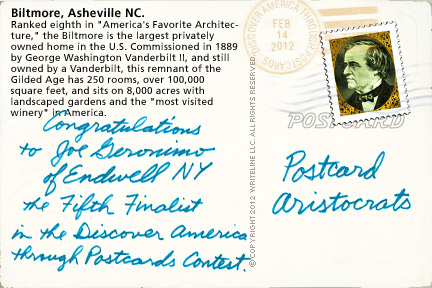 Biltmore, Asheville NC.
Ranked eighth in "America's Favorite Architec-
ture," the Biltmore is the largest privately
owned home in the U.S. Commissioned in 1889
by George Washington Vanderbilt II, and still
owned by a Vanderbilt, this remnant of the
Gilded Age has 250 rooms, over 100,000
square feet, and sits on 8,000 acres with
landscaped gardens and the "most visited
winery" in America.
Congratulations
to Joe Geronimo
of Endwell NY
the Fifth Finalist
in the Discover America
through Postcards Contest.
© COPYRIGHT 2012 WRITELINE LLC. ALL RIGHTS RESERVED.
DISCOVER AMERICA THROUGH POSTCARDS
FEB
14
2012
POSTCARD
Postcard
Aristocrats